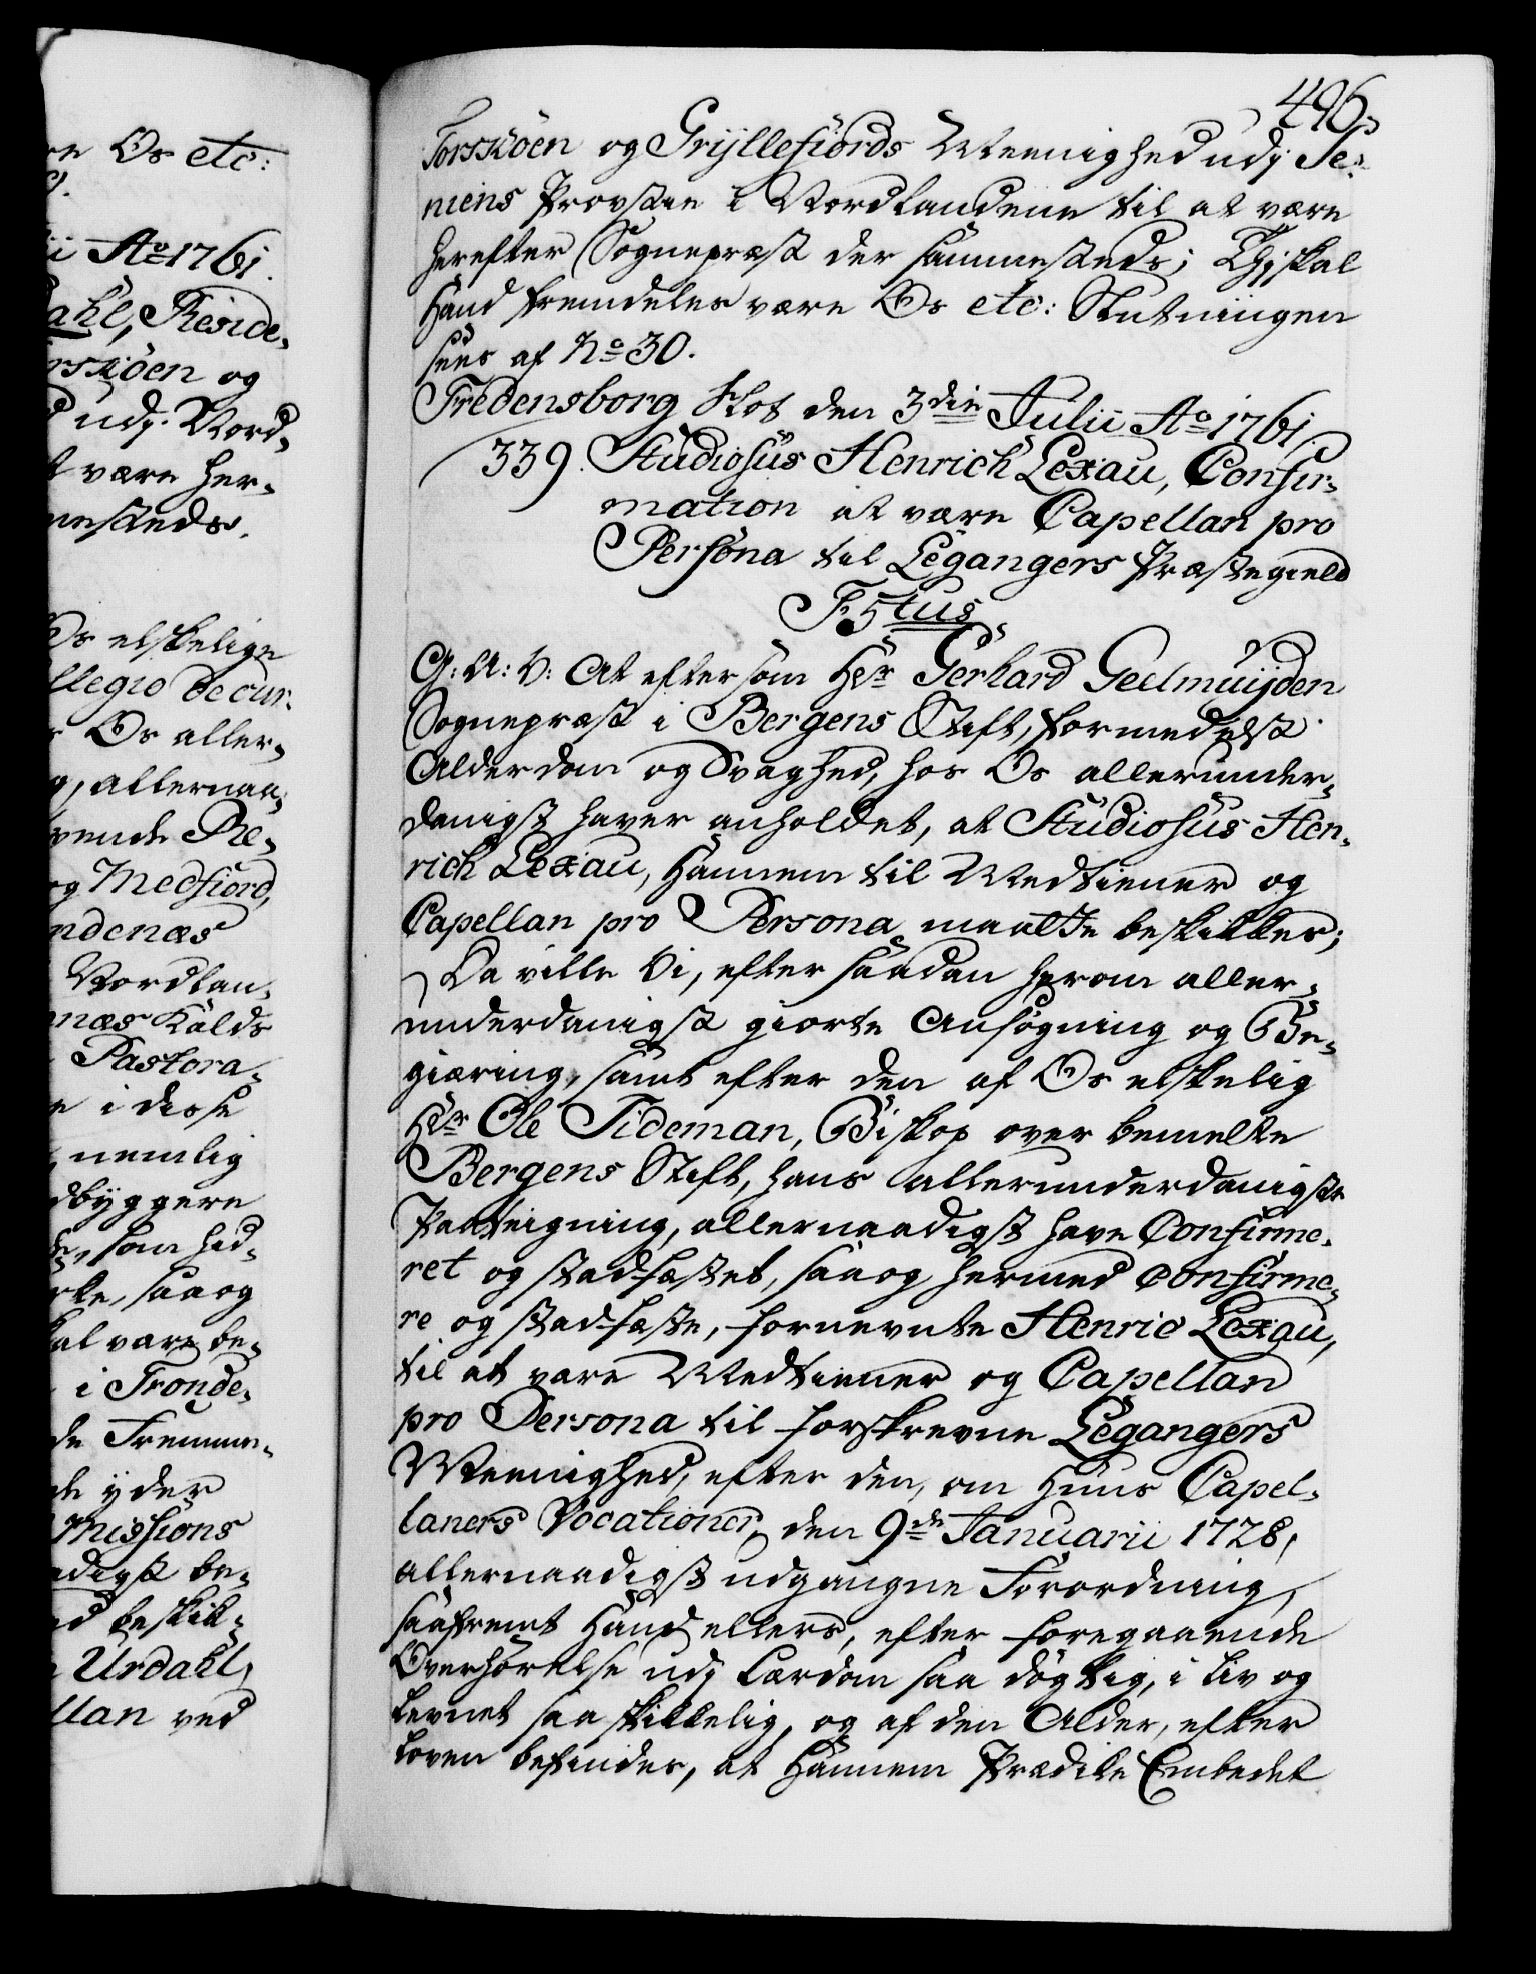 re Os etc:
ii Aō 1761.
dahl, Reside-
rskøen og
d udj Nord-
t være her-
mesteds.
Os elskelige
llegio de cur-
Os aller-
allernaa-
vende Re-
og Medfiord,
ndenæs
Nordlan-
næs Kalds
Pastora-
e i disse
nemlig
dbyggere
som hid-
rte, saa og
al være be-
i Tronde-
de Fremme-
de yder
Missions
adigst be-
ed beskik-
Urdahl,
llan ved
496.
Torskøen og Gryllefiords Meenighed udj Se-
niens Provstie i Nordlandene til at være
herefter Sognepræst der sammesteds; Thj skal
Hand fremdeles være Os etc: Slutningen
sees af No 30.
Fredensborg Slot den 3die Julii Aō 1761.
339. Studiosus Henrich Lexau, Confir-
mation at være Capellan pro
Persona til Legangers Præstegield
F5tus
G: A: V: At eftersom Hr Gerhard Geelmuijden
Sognepræst i Bergens Stift, formedelst
Alderdom og Svaghed, hos Os allerunder-
danigst haver anholdet, at Studiosus Hen-
rich Lexau, Hannem til Medtiener og
Capellan pro Persona maatte beskikkes;
Da ville Vi, efter saadan herom aller-
underdanigst giorte Ansøgning og Be-
giæring, samt efter den af Os elskelig
Hr Ole Tideman, Biskop over bemelte
Bergens Stift, hans allerunderdanigste
Paateigning, allernaadigst have Confirme-
ret og stadfæstet, saa og hermed confirme-
re og stadfæste, fornevnte Henric Lexau,
til at være Medtiener og Capellan
pro Persona til forskrevne Legangers
Meenighed, efter den, om Huus Capel-
laners Vocationer, den 9de Januarii 1728,
allernaadigst udgangne Forordning,
saafremt Hand ellers, efter foregaaende
Overhørelse udj Lærdom saa døgtig, i Liv og
Levnet saa skikkelig, og af den Alder, efter
Loven befindes, at Hannem Prædike Embedet